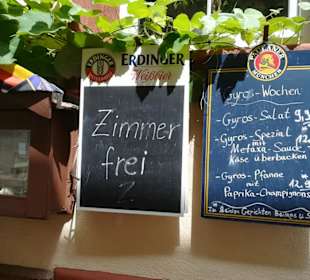 ERDINGER
Weißbier
Zimmer
frei
PAULANER
MÜNCHEN
Gyros-Wochen
- Gyros-Salat 9,9
- Gyros-Spezial 12
mit
Metaxa-Sauce
Käse überbacken
- Gyros-Pfanne 12.9
mit
Paprika-Champignons